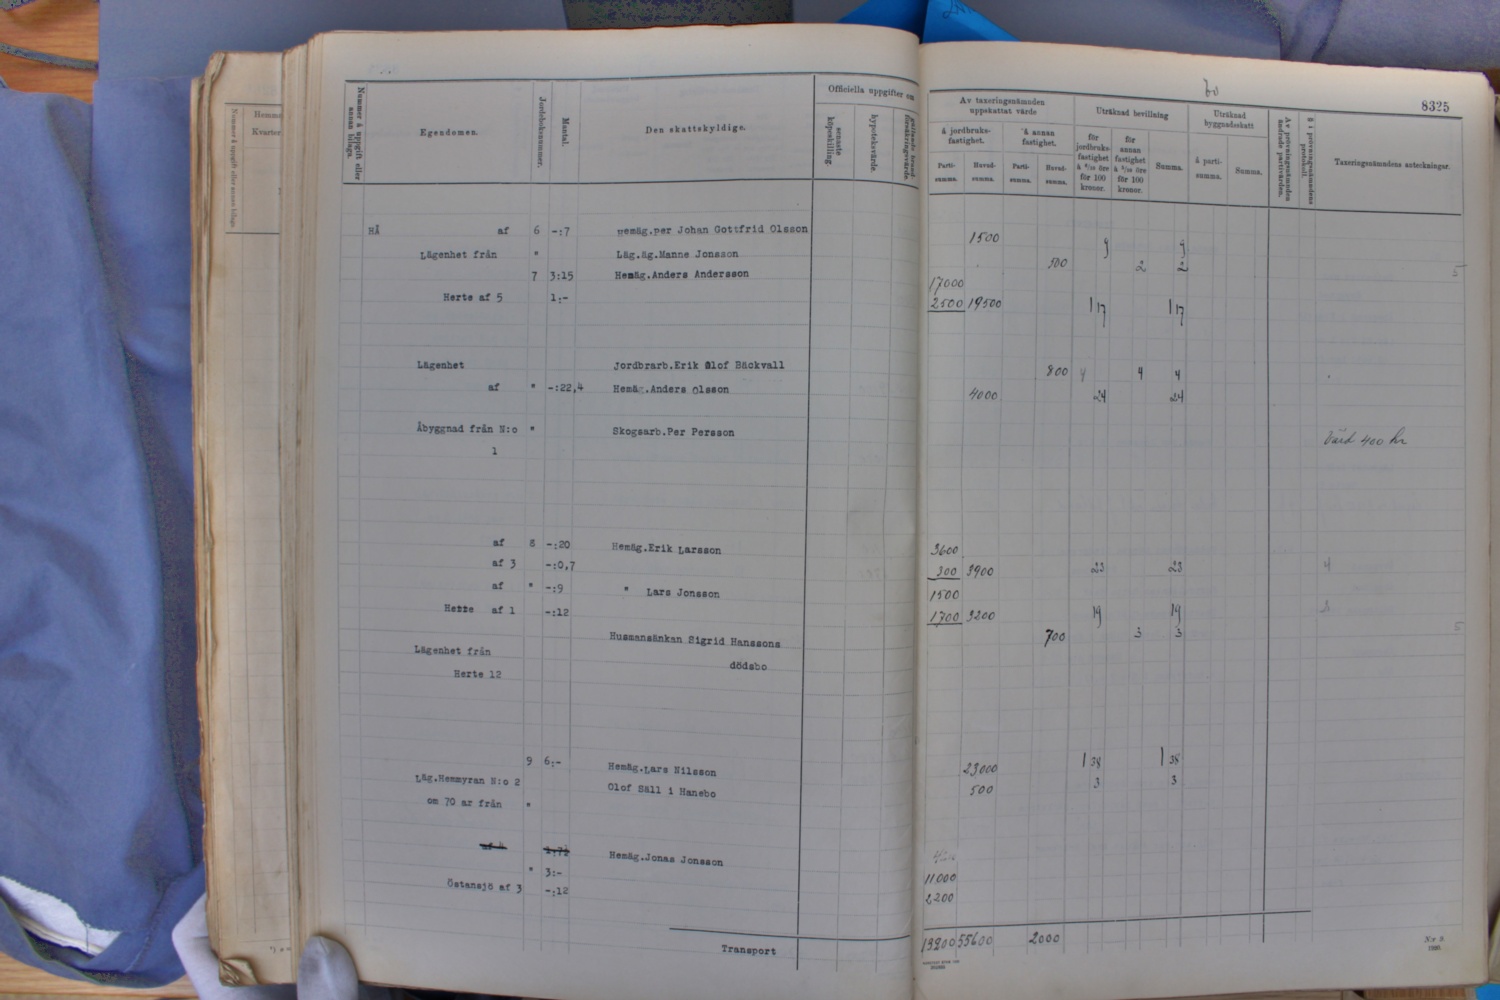 8325
Nummer å uppgift eller annan bilaga.
Egendomen.
Jordeboksnummer.
Mantal.
Den skattskyldige.
Officiella uppgifter om
senaste köpeskilling.
hypoteksvärde.
Av taxeringsnämnden uppskattat värde
å jordbruksfastighet.
å annan fastighet.
Partisumma.
Huvudsumma.
Partisumma.
Huvudsumma.
Uträknad bevillning
för jordbruksfastighet
för 100 kronor.
för annan fastighet
för 100 kronor.
Summa.
Uträknad byggnadsskatt
å partisumma.
Summa.
Av prövningsnämnden ändrade partivärden.
§ i prövningsnämndens protokoll.
Taxeringsnämndens anteckningar.
Hå af 6 -:7 Hemäg.Per Johan Gottfrid Olsson 1500 9 9
Lägenhet från " Läg.äg.Manne Jonsson 500 2 2 5
7 3:15 Hemäg.Anders Andersson 17000
Herte af 5 1:- 2500 19500 1 17 1 17
Lägenhet Jordbrarb.Erik Olof Bäckvall 800 4 4 4
af " -:22,4 Hemäg.Anders Olsson 4000 24 24
Åbyggnad från N:o " Skogsarb.Per Persson Värd 400 kr
1
af 8 -:20 Hemäg.Erik Larsson 3600
af 3 -:0,7 300 3900 23 23
af " -:9 " Lars Jonsson 1500
Herte af 1 -:12 1700 3200 19 19
Lägenhet från Husmansänkan Sigrid Hanssons 700 3 3 5
Herte 12 dödsbo
9 6:- Hemäg.Lars Nilsson 23000 1 38 1 38
Läg.Hemmyran N:o 2 Olof Säll i Hanebo 500 3 3
om 70 ar från "
Hemäg.Jonas Jonsson
" 3:- 11000
Östansjö af 3 -:12 2200
Transport 13200 55600 2000